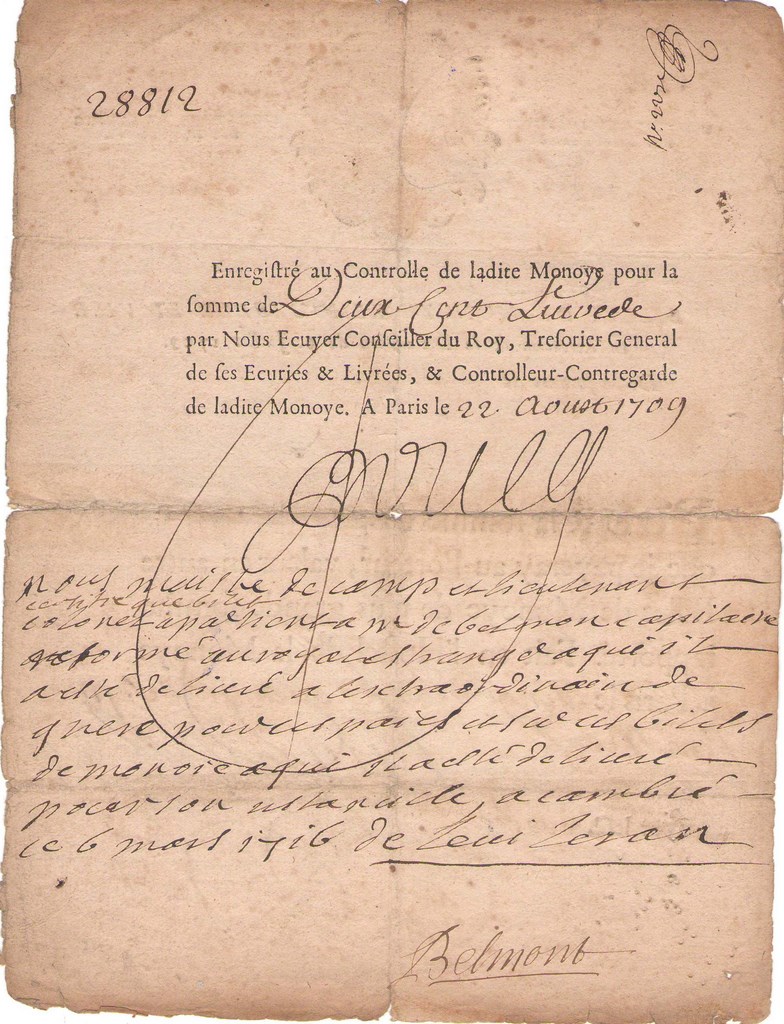 28812
Enregistré au Controlle de ladite Monoye pour la
somme de Deux Cent
par Nous Ecuyer Conseiller du Roy, Tresorier General
de ses Ecuries & Livrées, & Controlleur-Contregarde
de ladite Monoye. A Paris le 22. Aoust 1709
nous maistre de camp et lieutenant
certifie que
colonel apartient a mr de belmon capitaine
reformé au royal estranger a qui il
a esté deliuré a lextraordinaire de
guere pour
de monoie a qui il a esté deliuré
pour son a cambré
ce 6 mars 1716 de Leui Leran
Belmont